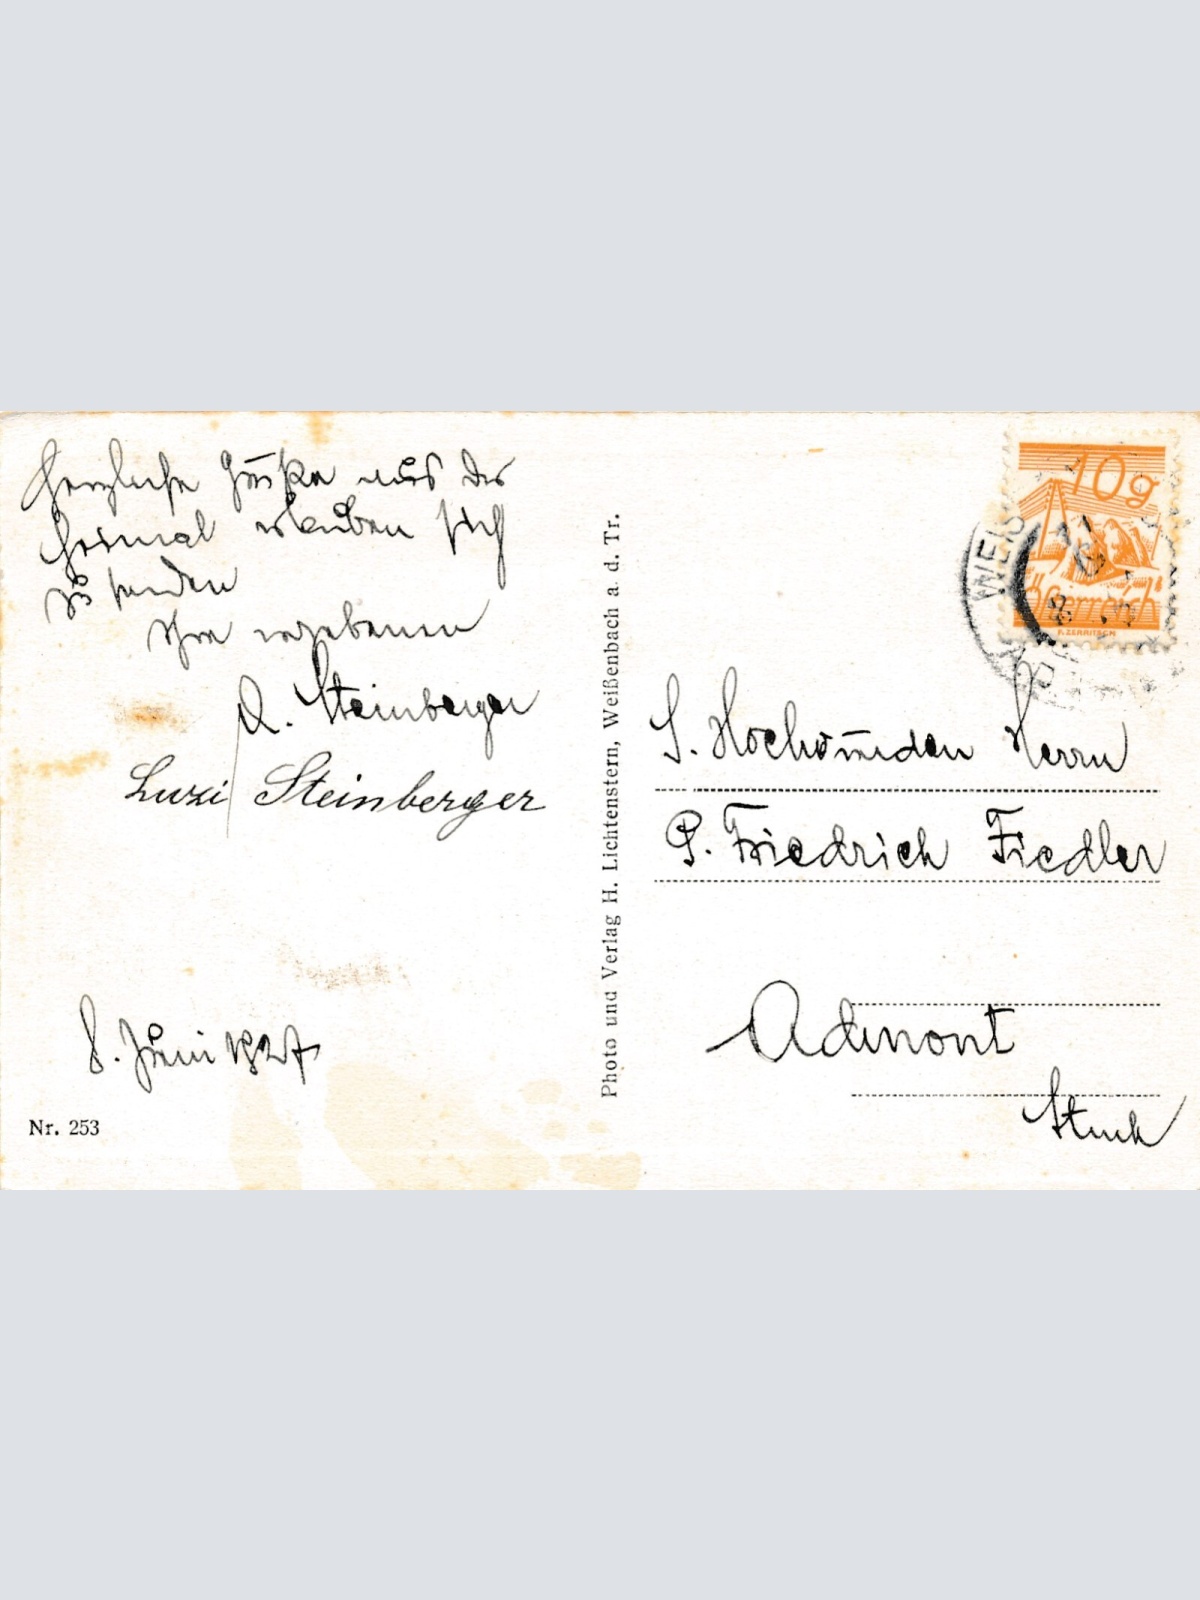 Herzliche Grüße aus der
Heimat erlauben sich
zu senden
Ihre ergebenen
A. Steinberger
Luzi Steinberger
8. Juni 1927
Nr. 253
Photo und Verlag H. Lichtenstern, Weißenbach a. d. Tr.
10g
Österreich
P. ZERRITSCH
WEIS
S. Hochwürden Herrn
P. Friedrich Fiedler
Admont